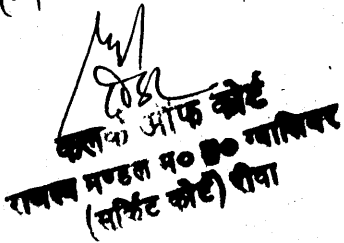 क्लर्क ऑफ कोर्ट
राजस्व मण्डल म०प्र० ग्वालियर
(सर्किट कोर्ट) रीवा